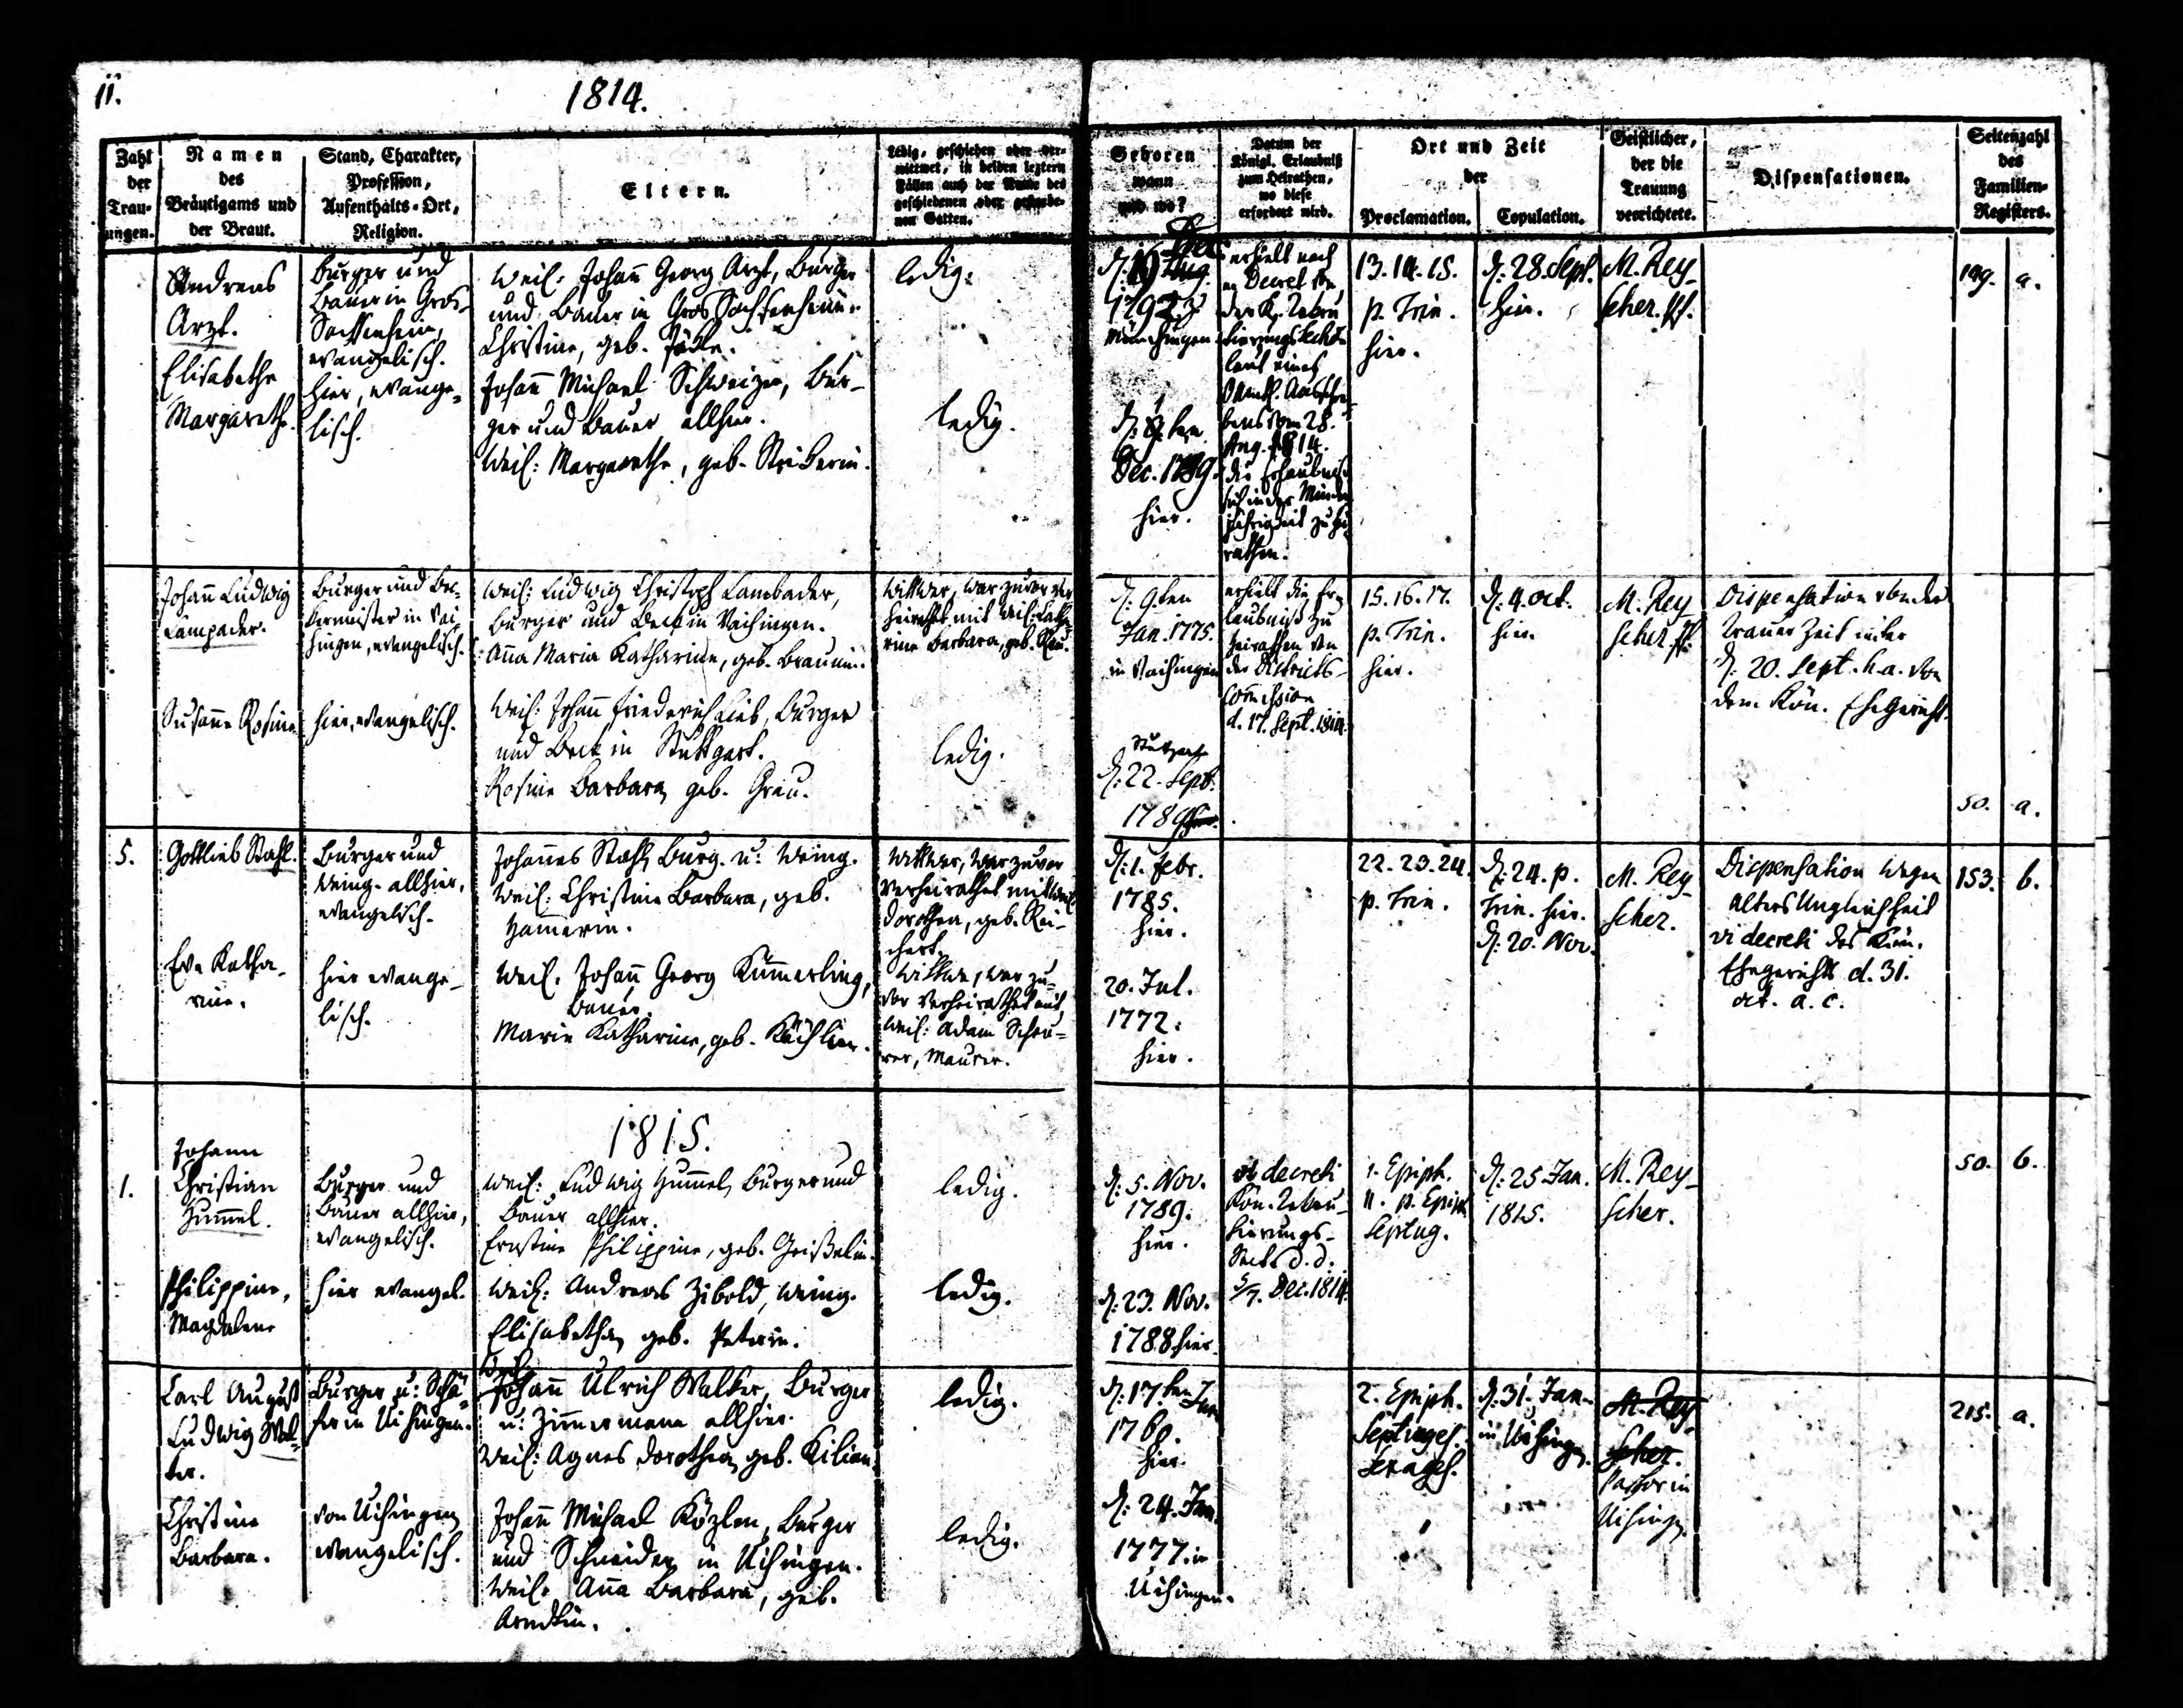 11.
1814.
Zahl
der
Trau-
ungen.
Namen
des
Bräutigams und
der Braut.
Stand, Charakter,
Profession,
Aufenthalts-Ort,
Religion.
Eltern.
Ledig, geschieden oder ver-
wittwet, in beiden leztern
Fällen auch der Name des
geschiedenen oder gestorbe-
nen Gatten.
Geboren
wann
und wo?
Datum der
Königl. Erlaubniß
zum Heirathen,
wo diese
erfordert wird.
Ort und Zeit
der
Proclamation.
Copulation.
Geistlicher,
der die
Trauung
verrichtete.
Dispensationen.
Seitenzahl
des
Familien-
Registers.
Andreas
Arzt.
Elisabetha
Margaretha.
Burger und
Bauer in Gros-
Sachsenheim,
evangelisch.
hier, evange-
lisch.
Weil. Johann Georg Arzt, Burger
und Bauer in Gros Sachsenheim.
Christine, geb.
Johann Michael Schweizer, Bur-
ger und Bauer allhier.
Weil: Margaretha, geb.
ledig.
ledig.
Dec.
Aug.
Münchingen
Dec. 1789.
hier.
erhielt nach
Decret
laut eines
vom 28.
Aug. 1814.
die Erlaubniß
sich in der Minder
jährigkeit zu hei
rathen.
13. 14. 15.
p. Trin.
hier.
d. 28. Sept.
hier.
M. Rey-
scher. Pf.
149. a.
Johann Ludwig
Lampader.
Susanna Rosina
Burger und Be-
kermeister in Vai-
hingen, evangelisch.
hier, evangelisch.
Weil: Ludwig Christoph Lambader,
Burger und Beck in Vaihingen.
Anna Maria Katharina, geb. Braunin.
Weil: Johann Friederich Lieb, Burger
und Beck in Stuttgart.
Rosine Barbara, geb. Grau.
Wittwer, war zuvor ver
heirathet mit Weil: Katha
rina Barbara, geb. Rau.
ledig.
d. 9ten
Jan. 1775.
in Vaihingen
Stuttgart
d. 22. Sept.
1789
erhielt die Er-
laubniß zu
heirathen von
der Districts-
Comission
d. 17. Sept. 1814.
15. 16. 17.
p. Trin.
hier.
d. 4. Oct.
hier.
M. Rey
scher. Pf.
Dispensation von der
Trauer Zeit unter
d. 20. Sept. h. a. von
dem Kön. Ehegericht.
50. a.
5.
Gottlieb Stahl.
Eva Katha-
rina.
Burger und
Weing. allhier,
evangelisch.
hier evange-
lisch.
Johannes Stahl, Burg. u: Weing.
Weil: Christina Barbara, geb.
Weil. Johann Georg Kümmerling,
Bauer.
Maria Katharina, geb.
Wittwer, war zuvor
verheirathet mit Weil
Dorothea, geb. Rei-
chert.
Wittwe, war zu-
vor verheirathet mit
Weil: Adam Scheu-
rer, Maurer.
d. 1. Febr.
1785.
hier.
20. Jul.
1772.
hier.
22. 23. 24.
p. Trin.
d. 24. p.
Trin. hier.
d. 20. Nov.
M. Rey
scher.
Dispensation wegen
Alters Ungleichheit
vi decreti des Kön.
Ehegerichts d. 31.
Oct. a. c.
153. b.
1815.
1.
Johann
Christian
Hummel.
Philippina,
Magdalena
Burger und
Bauer allhier,
evangelisch.
hier evangel.
Weil: Ludwig Hummel, Burger und
Bauer allhier.
Ernstine Philippine, geb. Geißelin.
Weil: Andreas Zibold, Weing.
Elisabetha, geb. Peterin.
ledig.
ledig.
d. 5. Nov.
1789.
hier.
d. 23. Nov.
1788 hier.
vi decreti
Kön. Rekru-
tierungs-
Sect. d. d.
5/7. Dec. 1814.
1. Epiph.
11. p. Epiph.
Septug.
d. 25 Jan.
1815.
M. Rey-
scher.
50. b.
Carl August
Ludwig Wal-
ter.
Christina
Barbara.
Burger u: Schä-
fer in Uihingen.
von Uihingen
evangelisch.
Weil.
Johann Ulrich Walker, Burger
u: Zimmermann allhier.
Weil: Agnes Dorothea, geb. Kilian.
Johann Michael Közlen, Burger
und Schneider in Uihingen.
Weil. Anna Barbara, geb.
ledig.
ledig.
d. 17. ten Jan
hier.
d. 24. Jan.
1777. in
Uihingen.
2. Epiph.
Septuages.
Sexages.
d. 31. Jan.
in Uihingen.
M. Rey
scher.
Pastor in
Uihingen
215. a.